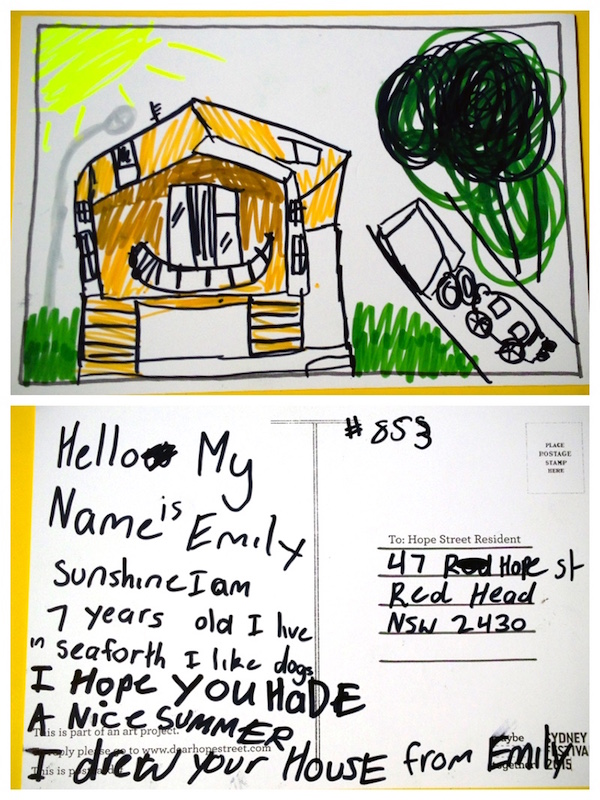 Hello My
Name is Emily
Sunshine I am
7 years old I live
in Seaforth I like dogs
I Hope YOU HaDE
A Nice SUMMER
This is part of an art project.
I drew your House from Emily
reply please go to www.dearhopestreet.com
This is
#853
PLACE
POSTAGE
STAMP
HERE
To: Hope Street Resident
47 Hope st
Red Head
NSW 2430
maybe
together
SYDNEY
FESTIVAL
2015